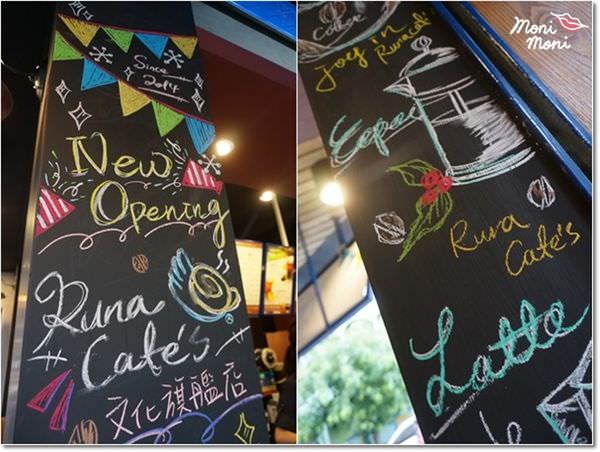 Since 2014
New
Opening
Runa
Café's
文化旗艦店
Coffee
Joy in
Runa Café
Runa
Café's
Latte
Moni
Moni